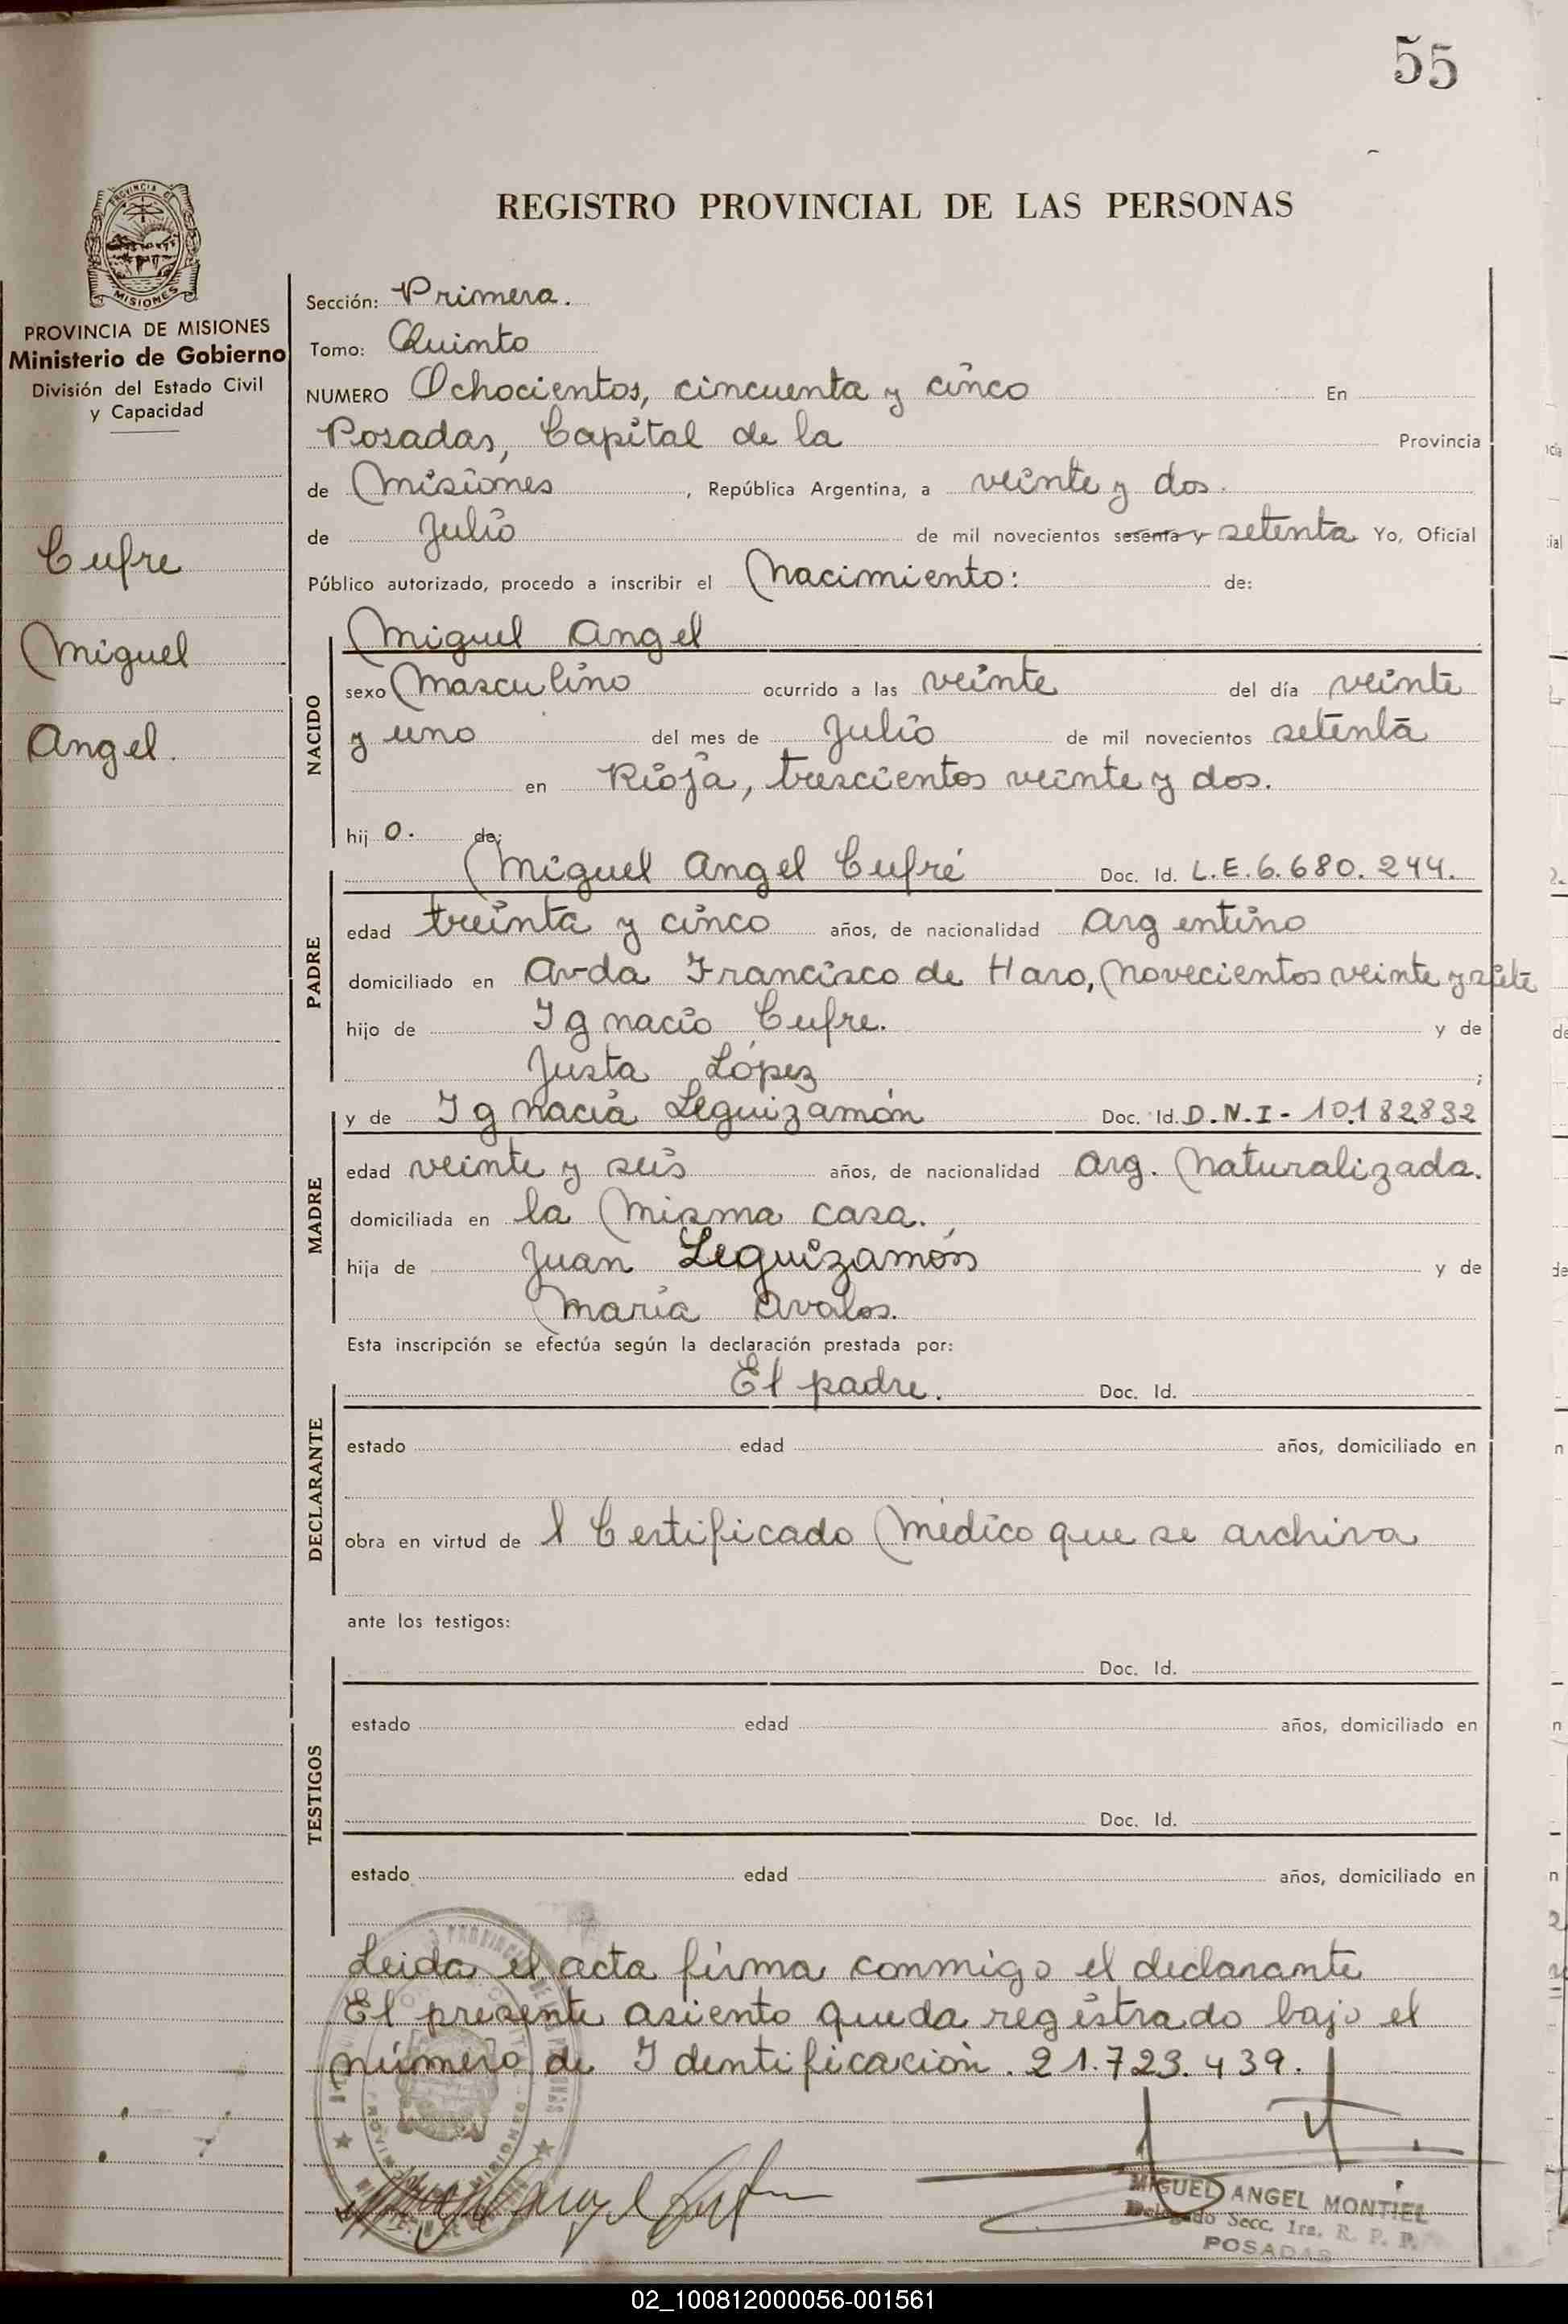 55
REGISTRO PROVINCIAL DE LAS PERSONAS
PROVINCIA DE MISIONES
MISIONES
PROVINCIA DE MISIONES
Ministerio de Gobierno
División del Estado Civil
y Capacidad
Cufre
Miguel
Angel.
Sección: Primera.
Tomo: Quinto
NUMERO Ochocientos, cincuenta y cinco En
Posadas, Capital de la Provincia
de Misiones, República Argentina, a veinte y dos.
de Julio de mil novecientos sesenta y setenta Yo, Oficial
Público autorizado, procedo a inscribir el Nacimiento: de:
NACIDO
Miguel Angel
sexo Masculino ocurrido a las veinte del día veinte
y uno del mes de Julio de mil novecientos setenta
en Rioja, trescientos veinte y dos.
hij o. de:
PADRE
Miguel Angel Cufré Doc. Id. L.E. 6.680.244.
edad treinta y cinco años, de nacionalidad Argentino
domiciliado en Avda Francisco de Haro, Novecientos veinte y siete
hijo de Ignacio Cufre. y de
Justa López ;
MADRE
y de Ignacia Leguizamón Doc. Id. D.N.I - 10.182832
edad veinte y seis años, de nacionalidad Arg. Naturalizada.
domiciliada en la misma casa.
hija de Juan Leguizamón y de
María Avalos.
Esta inscripción se efectúa según la declaración prestada por:
DECLARANTE
El padre. Doc. Id.
estado edad años, domiciliado en
obra en virtud de l Certificado Médico que se archiva
ante los testigos:
TESTIGOS
Doc. Id.
estado edad años, domiciliado en
Doc. Id.
estado edad años, domiciliado en
Leida el acta firma conmigo el declarante
El presente asiento queda registrado bajo el
número de Identificación. 21.723.439.
MIGUEL ANGEL MONTIEL
Delegado Secc. 1ra. R. P. P.
POSADAS
02_100812000056-001561